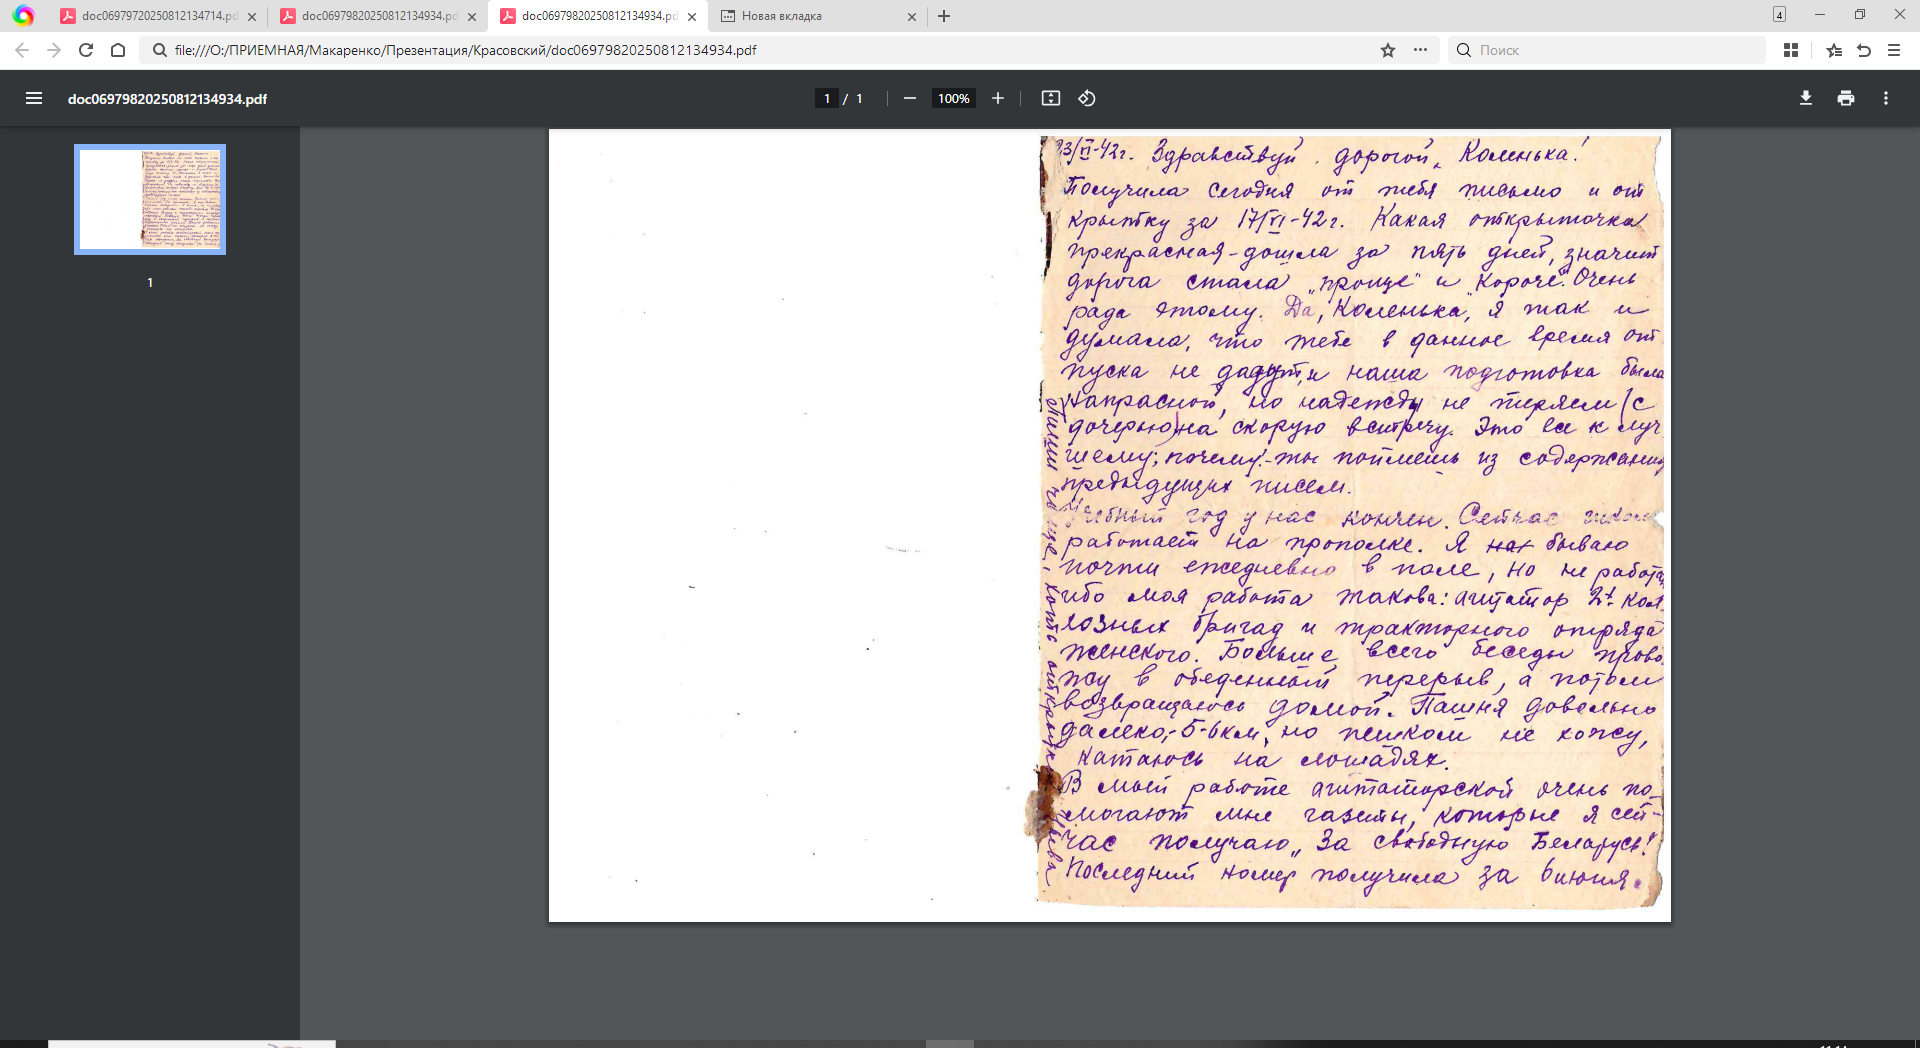 doc06979720250812134714.pd
doc06979820250812134934.pd
doc06979820250812134934.pd
Новая вкладка
4
file:///O:/ПРИЕМНАЯ/Макаренко/Презентация/Красовский/doc06979820250812134934.pdf
Поиск
doc06979820250812134934.pdf
1 / 1
100%
1
23/VI-42г. Здравствуй, дорогой Коленька!
Получила сегодня от тебя письмо и от
крытку за 17/VI-42г. Какая открыточка
прекрасная - дошла за пять дней, значит
дорога стала "проще" и "короче". Очень
рада этому. Да, Коленька, я так и
думала, что тебе в данное время от
пуска не дадут, и наша подготовка была
напрасной, но надежды не теряем (с
дочерью) на скорую встречу. Это все к луч
шему; почему - ты поймешь из содержания
предыдущих писем.
Учебный год у нас кончен. Сейчас школа
работает на прополке. Я бываю
почти ежедневно в поле, но не работаю
ибо моя работа такова: агитатор 2х кол
хозных бригад и тракторного отряда
женского. Больше всего беседы прово
жу в обеденный перерыв, а потом
возвращаюсь домой. Пашня довольно
далеко, - 5-6 км, но пешком не хожу,
катаюсь на лошадях.
В моей работе агитаторской очень по-
могают мне газеты, которые я сей-
час получаю "За свободную Беларусь!"
Последний номер получила за 6 июня.
Пиши чаще, хоть открытки